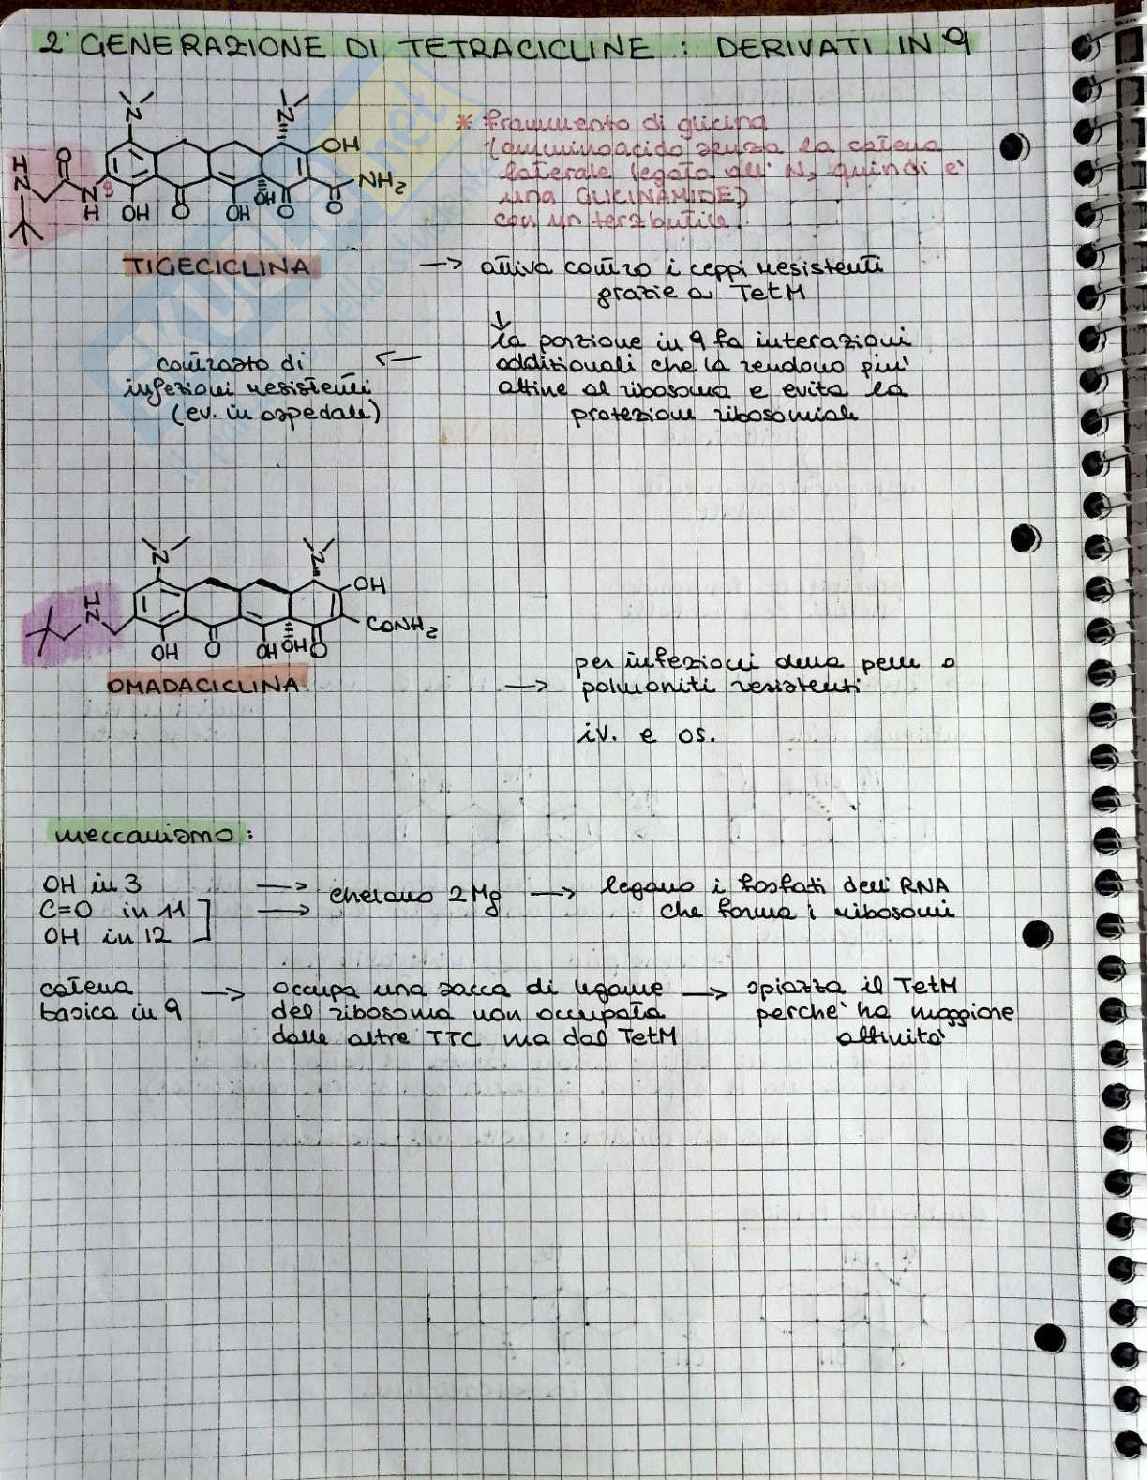 2° GENERAZIONE DI TETRACICLINE : DERIVATI IN 9
* frammento di glicina
(amminoacido senza la catena
laterale legato all' N, quindi è
una GLICINAMIDE)
con un terzbutile.
N
N
OH
NH₂
O
OH
O
OH
O
OH
N
H
9
O
HN
TIGECICLINA
→ attiva contro i ceppi resistenti
grazie a TetM
↓
la porzione in 9 fa interazioni
addizionali che la rendono piu'
affine al ribosoma e evita la
protezione ribosomiale
←
contrasto di
infezioni resistenti
(ev. in ospedale)
N
N
OH
CONH₂
HN
OH
O
OH
OH
O
OMADACICLINA
→ per infezioni della pelle o
polmoniti resistenti
iv. e os.
meccanismo :
OH in 3
C=O in 11
OH in 12
→ chelano 2 Mg → legano i fosfati dell' RNA
che forma i ribosomi
catena
basica in 9
→ occupa una sacca di legame
del ribosoma non occupata
dalle altre TTC ma dal TetM
→ spiazza il TetM
perche' ha maggiore
affinita'